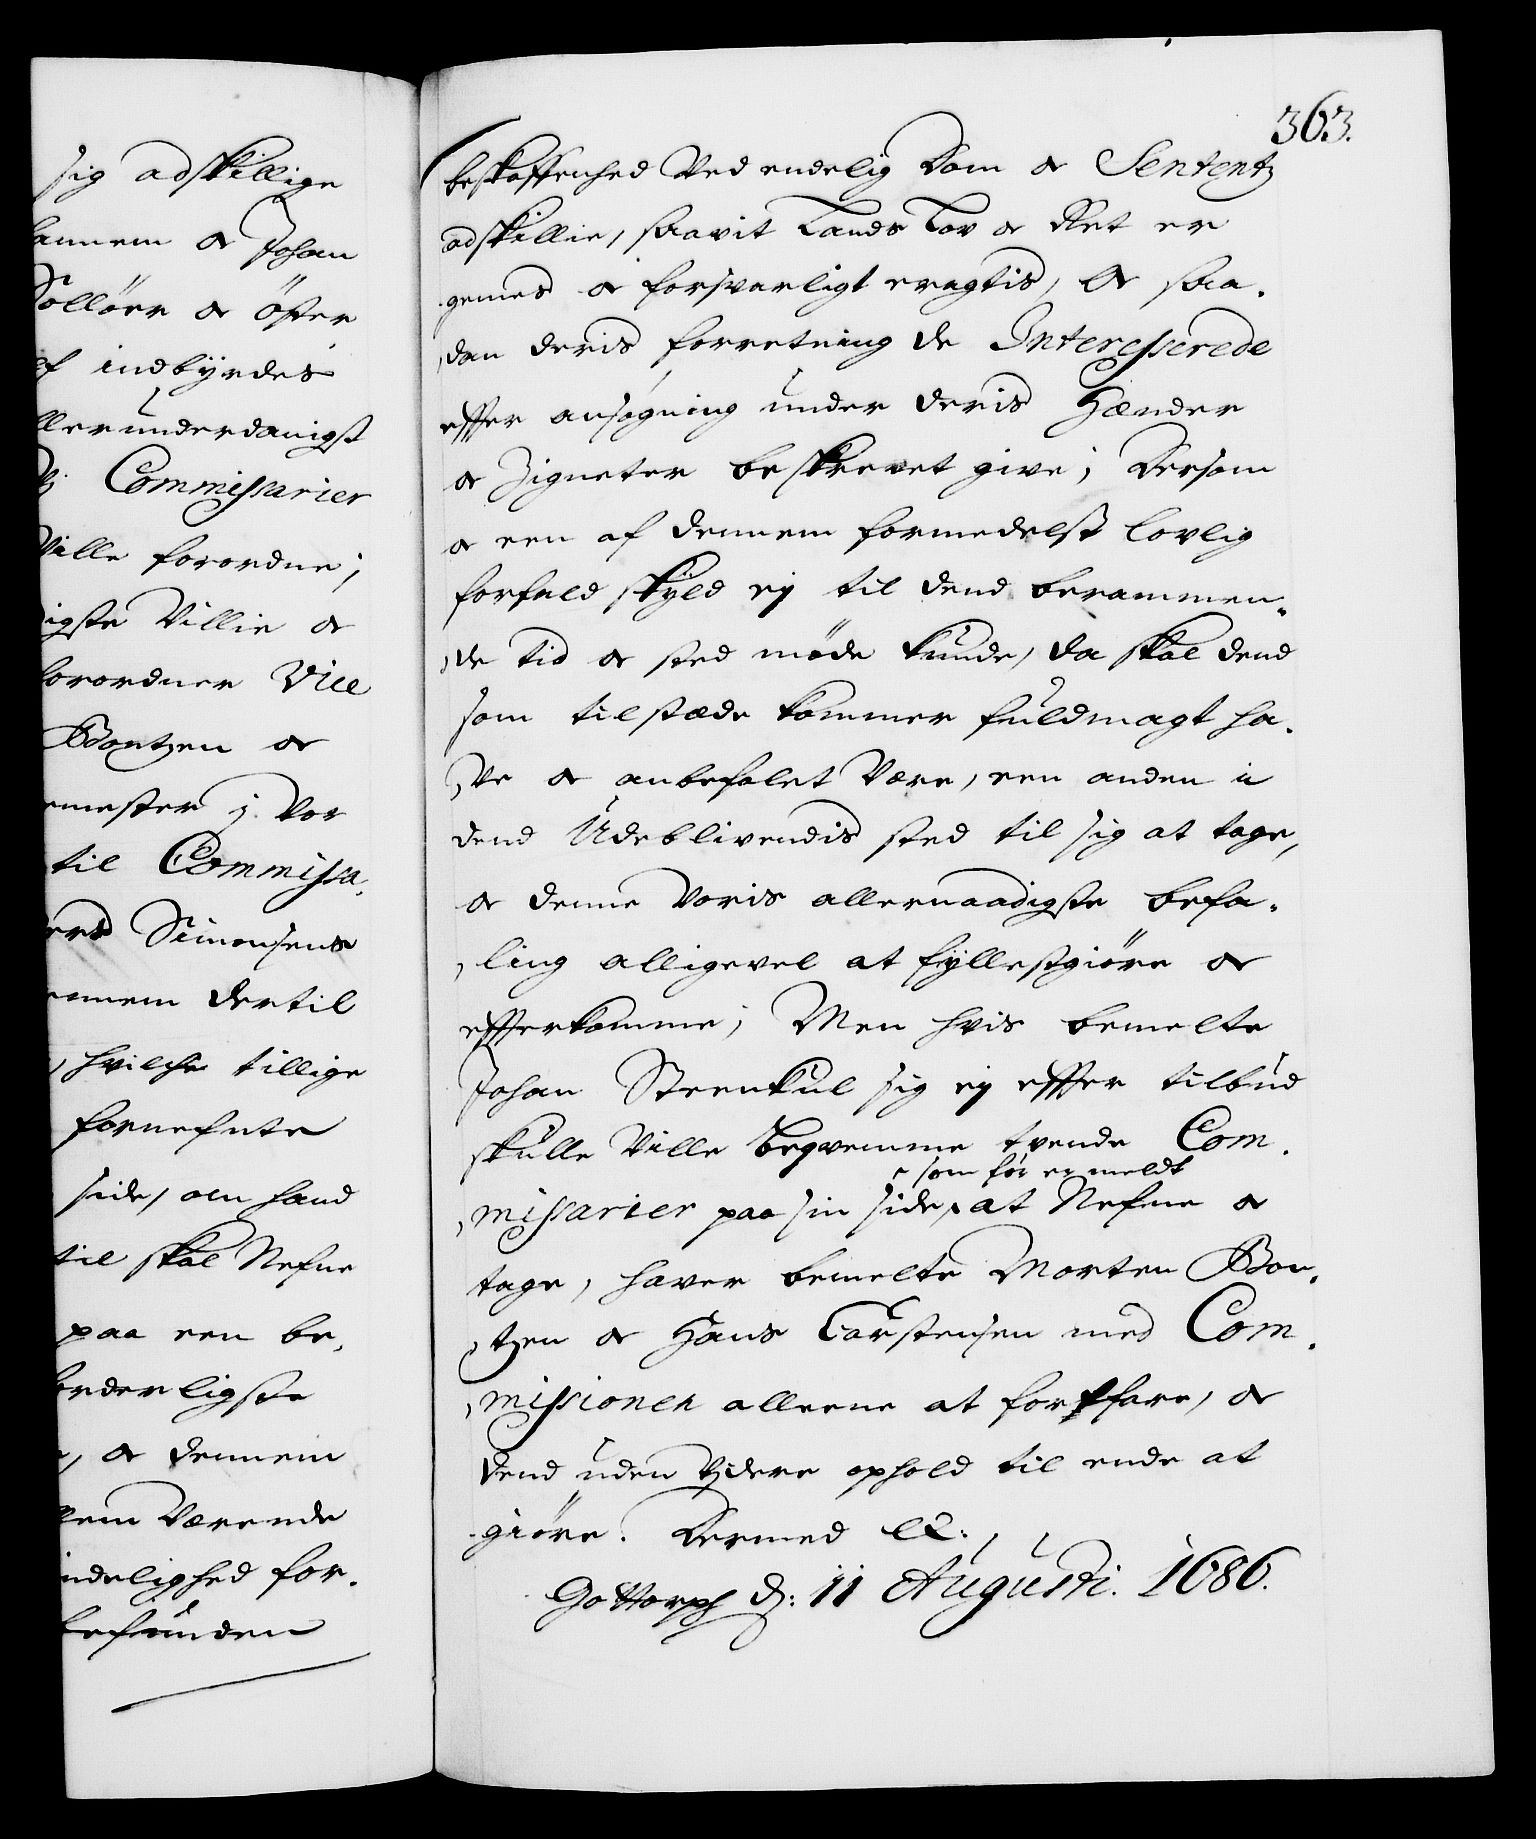 sig adskillige
hannem oc Johan
Sollöer oc öster
af indbyrdes
allerunderdanigst
Commissarier
Ville forordne;
digste Villie oc
forordner Vice
Bontzen oc
emester j. Vor
til Commissa,
Simonsens
ennem dertil
, hvilche tillige
fornefnte
side, om hand
til skal Nefne
paa een be,
forderligste
, oc dennem
lem Værende
indelighed for,
befunden
363.
beskaffenhed Ved endelig Dom oc Sententz
adskillie, saavit Lands Lov oc Ret er
gemes oc forsvarligt eragtis, Oc saa,
,dan deris forretning de Interesserede
effter ansøgning under deris Hænder
oc Zigneter beskrevet give; Dersom
oc een af dennem formedelst lovlig
forfald skyld ej til dend berammen,
,de tid oc sted møde kunde, da skal dend
som tilstæde kommer fuldmagt ha,
,Ve oc anbefalet Være, een anden i
dend Udeblivendis sted til sig at tage,
oc denne Voris allernaadigste befa,
,ling alligevel at fyllestgiöre oc
effterkomme; Men hvis bemelte
Johan Steenkul sig ej effter tilbud
skulle Ville beqvemme tvende Com,
som før er meldt
,missarier paa sin side, at Nefne oc
tage, haver bemelte Morten Bon,
,tzen oc Hans Carstensen med Com,
,missionen alleene at fortfare, oc
dend uden Videre ophold til ende at
giöre. Dermed etc:
Gottorph d: 11 Augusti. 1686.